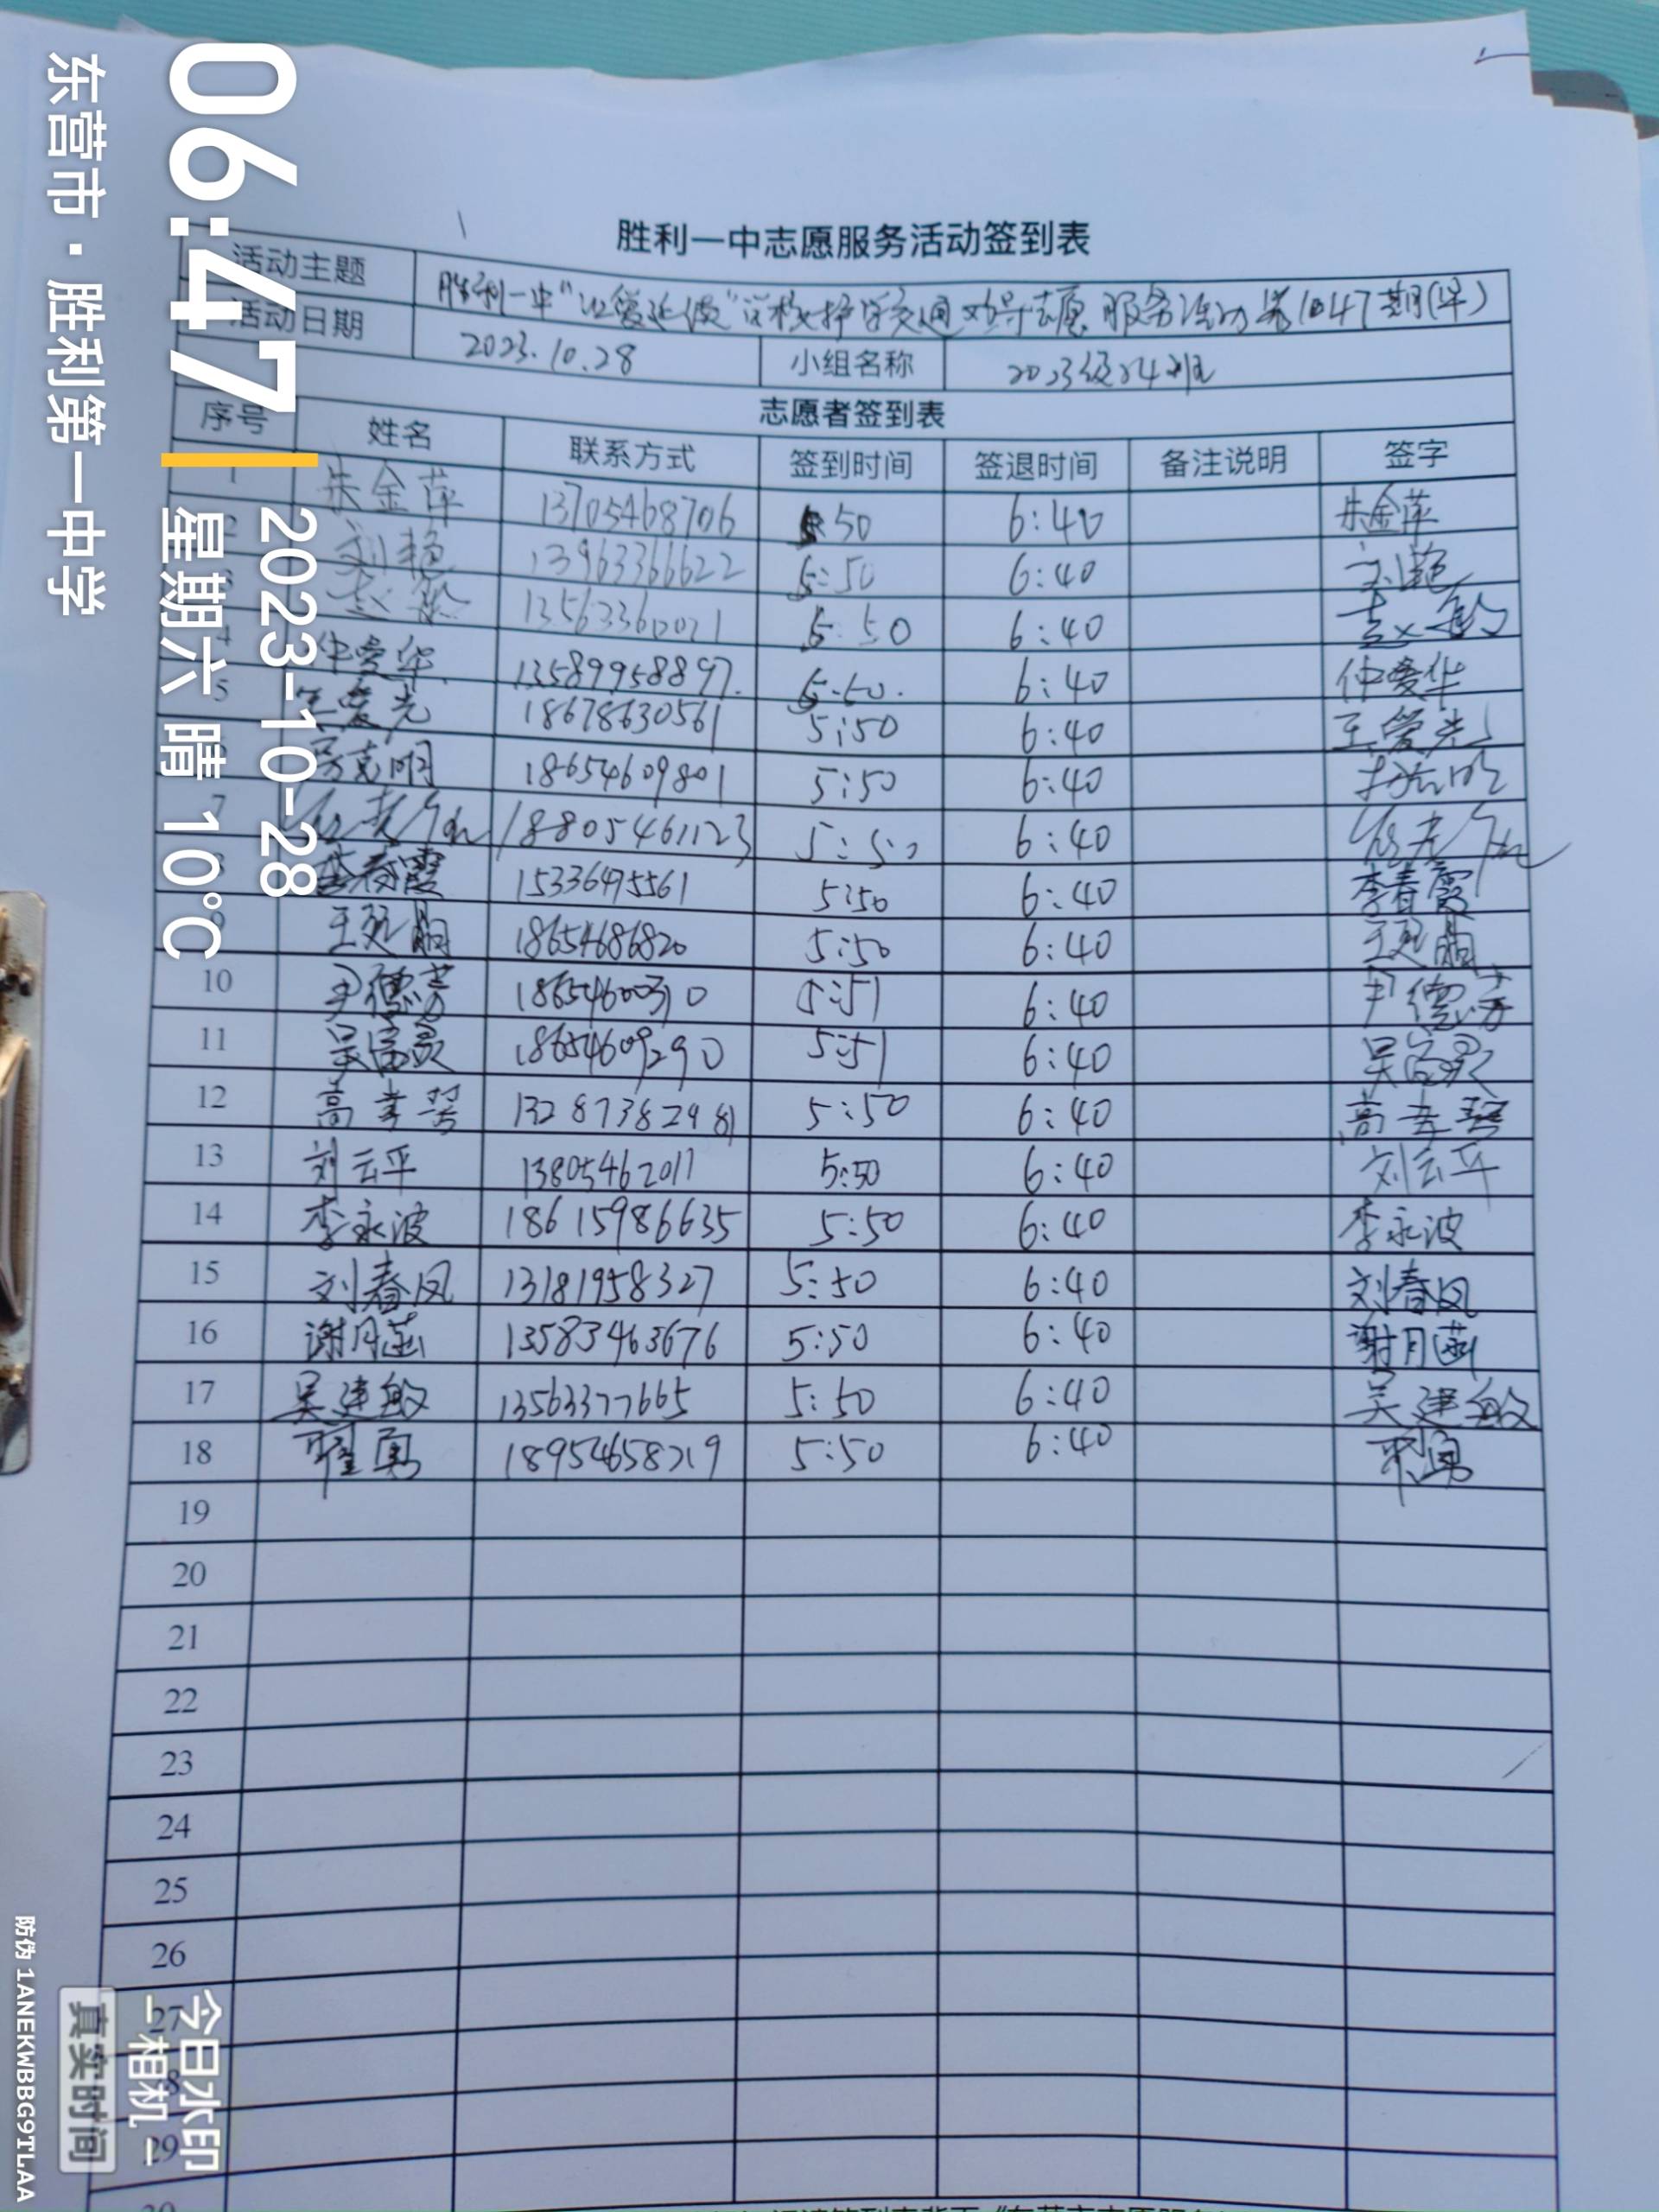 胜利一中志愿服务活动签到表
活动主题 胜利一中"让爱延伸"学校护学交通劝导志愿服务活动第1047期(早)
活动日期 2023.10.28 小组名称 2023级24班
志愿者签到表
序号 姓名 联系方式 签到时间 签退时间 备注说明 签字
1 朱金萍 13705468706 5:50 6:40 朱金萍
2 刘艳 13963366622 5:50 6:40 刘艳
5:50 6:40
4 仲爱华 13589958897 6:40 仲爱华
5 王爱光 18678630561 5:50 6:40 王爱光
18654609801 5:50 6:40
7 18805461123 5:50 6:40
李春霞 15336495561 5:50 6:40 李春霞
9 18654686820 5:50 6:40
10 尹德芳 18654600310 5:51 6:40 尹德芳
11 18654609290 5:51 6:40
12 13287382981 5:50 6:40
13 刘云平 13805462011 5:50 6:40 刘云平
14 李永波 18615986635 5:50 6:40 李永波
15 刘春凤 13181958327 5:50 6:40 刘春凤
16 谢月菡 13583463676 5:50 6:40 谢月菡
17 吴建敏 13563377665 5:50 6:40 吴建敏
18 18954658219 5:50 6:40
19
20
21
22
23
24
25
26
27
28
29
30
06:47
2023-10-28
星期六 晴 10°C
东营市·胜利第一中学
今日水印
-相机-
真实时间
防伪 1ANEKWBBG9TLAA